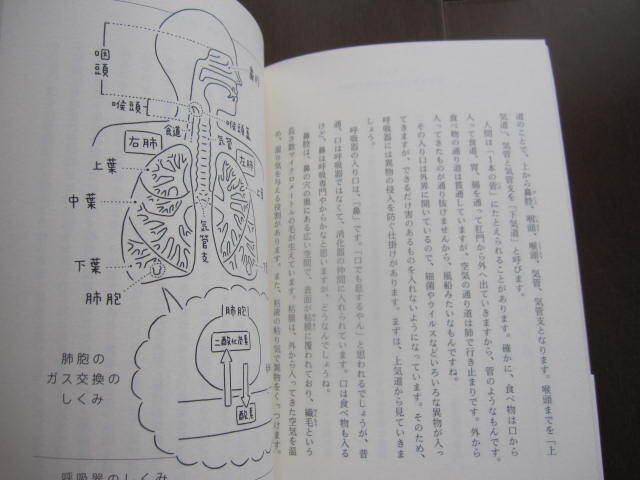 咽頭
鼻腔
喉頭
喉頭蓋
食道
気管
右肺
左肺
上葉
中葉
下葉
肺胞
気管支
肺胞
二酸化炭素
酸素
肺胞の
ガス交換の
しくみ
呼吸器のしくみ
道のことで、上から鼻腔、咽頭、喉頭、気管、気管支となります。喉頭までを「上
気道」、気管と気管支を「下気道」と呼びます。
人間は「1本の管」にたとえられることがあります。確かに、食べ物は口から
入って食道、胃、腸を通って肛門から外へ出ていきますから、管のようなものです。
食べ物の通り道は貫通していますが、空気の通り道は肺で行き止まりです。外から
入ってきたものが通り抜けませんから、風船みたいなものですね。
その入り口は外界に開いているので、細菌やウイルスなどいろいろな異物が入っ
てきますが、できるだけ害のあるものを入れないようになっています。そのため、
呼吸器には異物の侵入を防ぐ仕掛けがあります。まずは、上気道から見ていきま
しょう。
呼吸器の入り口は、「鼻」です。「口でも息するやん」と思われるでしょうが、普
通、口は呼吸器ではなくて、消化器の仲間に入れられています。口は食べ物も入る
けど、鼻は呼吸専門やからかなと思いますが、どうなんでしょうね。
鼻腔は、鼻の穴の奥にある広い空間で、表面が粘膜に覆われており、繊毛という
長さ数マイクロメートルの毛が生えています。粘膜は、外から入ってきた空気を温
め、湿り気を与える役割があります。また、粘液の粘り気で異物をくっつけます。